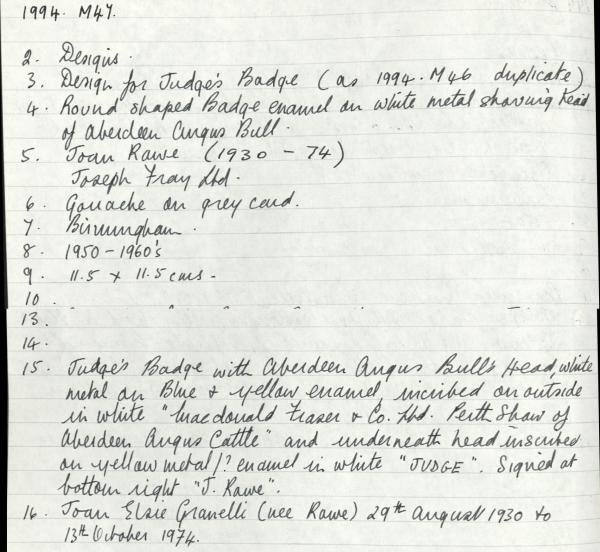 1994. M47.
2. Designs.
3. Design for Judge's Badge (as 1994. M46 duplicate)
4. Round shaped Badge enamel on white metal showing head
of Aberdeen Angus Bull.
5. Joan Rawe (1930 - 74)
Joseph Fray Ltd.
6. Gouache on grey card.
7. Birmingham.
8. 1950-1960's
9. 11.5 x 11.5 cms.
10.
13.
14.
15. Judge's Badge with Aberdeen Angus Bull's Head, white
metal on Blue & yellow enamel, incribed on outside
in white "Macdonald Fraser & Co. Ltd. Perth Show of
Aberdeen Angus Cattle" and underneath head inscribed
on yellow metal/? enamel in white "JUDGE". Signed at
bottom right "J. Rawe".
16. Joan Elsie Granelli (nee Rawe) 29th August 1930 to
13th October 1974.